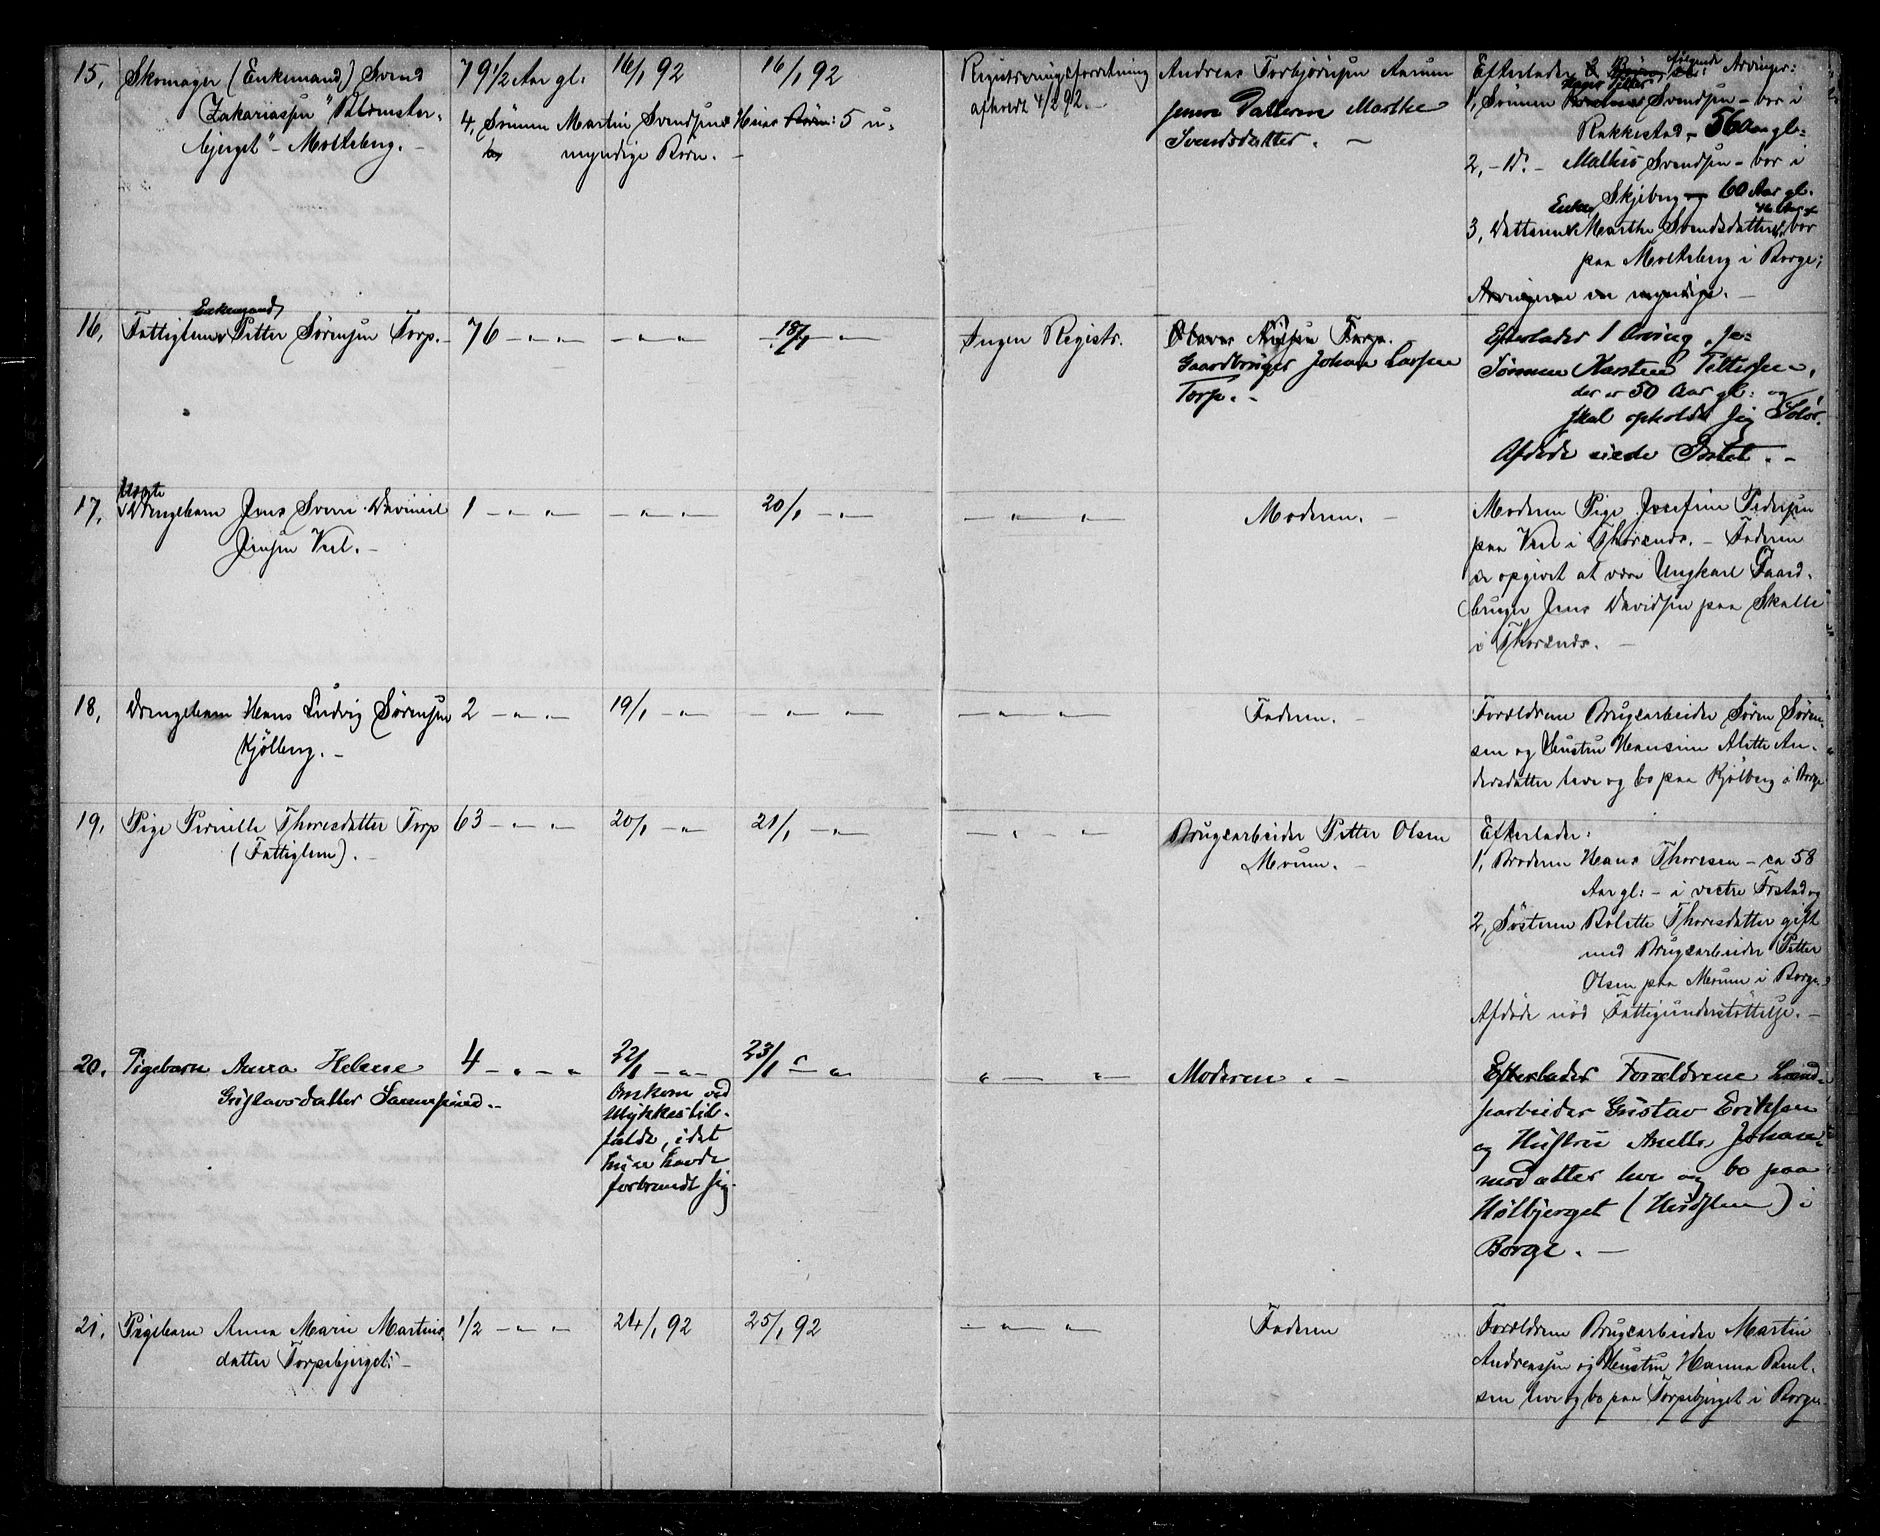 15, Skomager (Enkemand) Svend
Zakariassen "Blomster-
bjerget" - Molteberg. -
79 1/2 Aar gl:
16/1 92
16/1 92
4, Sönnen Martin Svendsens Börn: 5 u-
myndige Börn. -
Registreringsforretning
afholdt 4/2 92. -
Andreas Torbjörnsen Aarum
Datteren Marthe
Svendsdatter. -
Efterlader følgende Arvinger:
1, Sönnen Svendsen - bor i
Rakkestad - 56 Aar gl:
2, - Do - Mathis Svendsen - bor i
Skjeberg - 60 Aar gl.
Enke 46 Aar
3, Datteren Marthe Svendsdatter bor
paa Molteberg i Borge;
Arvingerne er myndige. -
16, Enkemand
Fattiglem Petter Sörensen Torp. -
76 - " - "
- " - "
18/1 - "
Ingen Registr.
Gaardbruger Johan Larsen
Torp. -
Efterlader 1 Arving,
Sønnen Karsten Pettersen,
der er 50 Aar gl: og
skal opholde sig Solør.
Afdøde eiede Intet. -
17, Uægte
Drengebarn Jens Sverre Davinius
Jensen Vesl. -
1 - " - "
- " - "
20/1 - "
- " -
Moderen. -
Moderen Pige Josefine Pedersen
paa i Thorsnæs. - Faderen
er opgivet at være Ungkarl Gaard-
bruger Jens Davidsen paa Skalle
i Thorsnæs. -
18, Drengebarn Hans Ludvig Sörensen
Kjölberg. -
2 - " - "
19/1 - "
- " -
- " -
Faderen. -
Forældrene Brugsarbeider Sören Sören-
sen og Hustru Hansine Alette An-
dersdatter leve og bo paa Kjölberg i Borge
19, Pige Pernille Thoresdatter Torp
(Fattiglem). -
63 - " - "
20/1 - "
21/1 - "
- " -
Brugsarbeider Petter Olsen
Moum. -
Efterlader:
1, Broderen Hans Thoresen - ca 58
Aar gl: - i vestre Frstad og
2, Søsteren Bolette Thoresdatter gift
med Brugsarbeider Petter
Olsen paa Moum i Borge.
Afdøde nöd Fattigunderstöttelse. -
20. Pigebarn Anna Helene
Gustavsdatter
4 - " - "
22/1 - "
Omkom ved
Ulykkestil-
fælde, idet
hun havde
forbrændt sig.
23/1 - "
" - " -
Moderen. -
Efterlader Forældrene Land-
arbeider Gustav Eriksen
og Hustru Anette Johan-
nesdatter leve og bo paa
Holbjerget ( ) i
Borge. -
21. Pigebarn Anna Marie Martins-
datter Torpebjerget. -
1/2 - " - "
24/1 92
25/1 92
- " -
Faderen
Forældrene Brugsarbeider Martin
Andreassen og Hustru Hanna Bent-
sen leve og bo paa Torpebjerget i Borge.